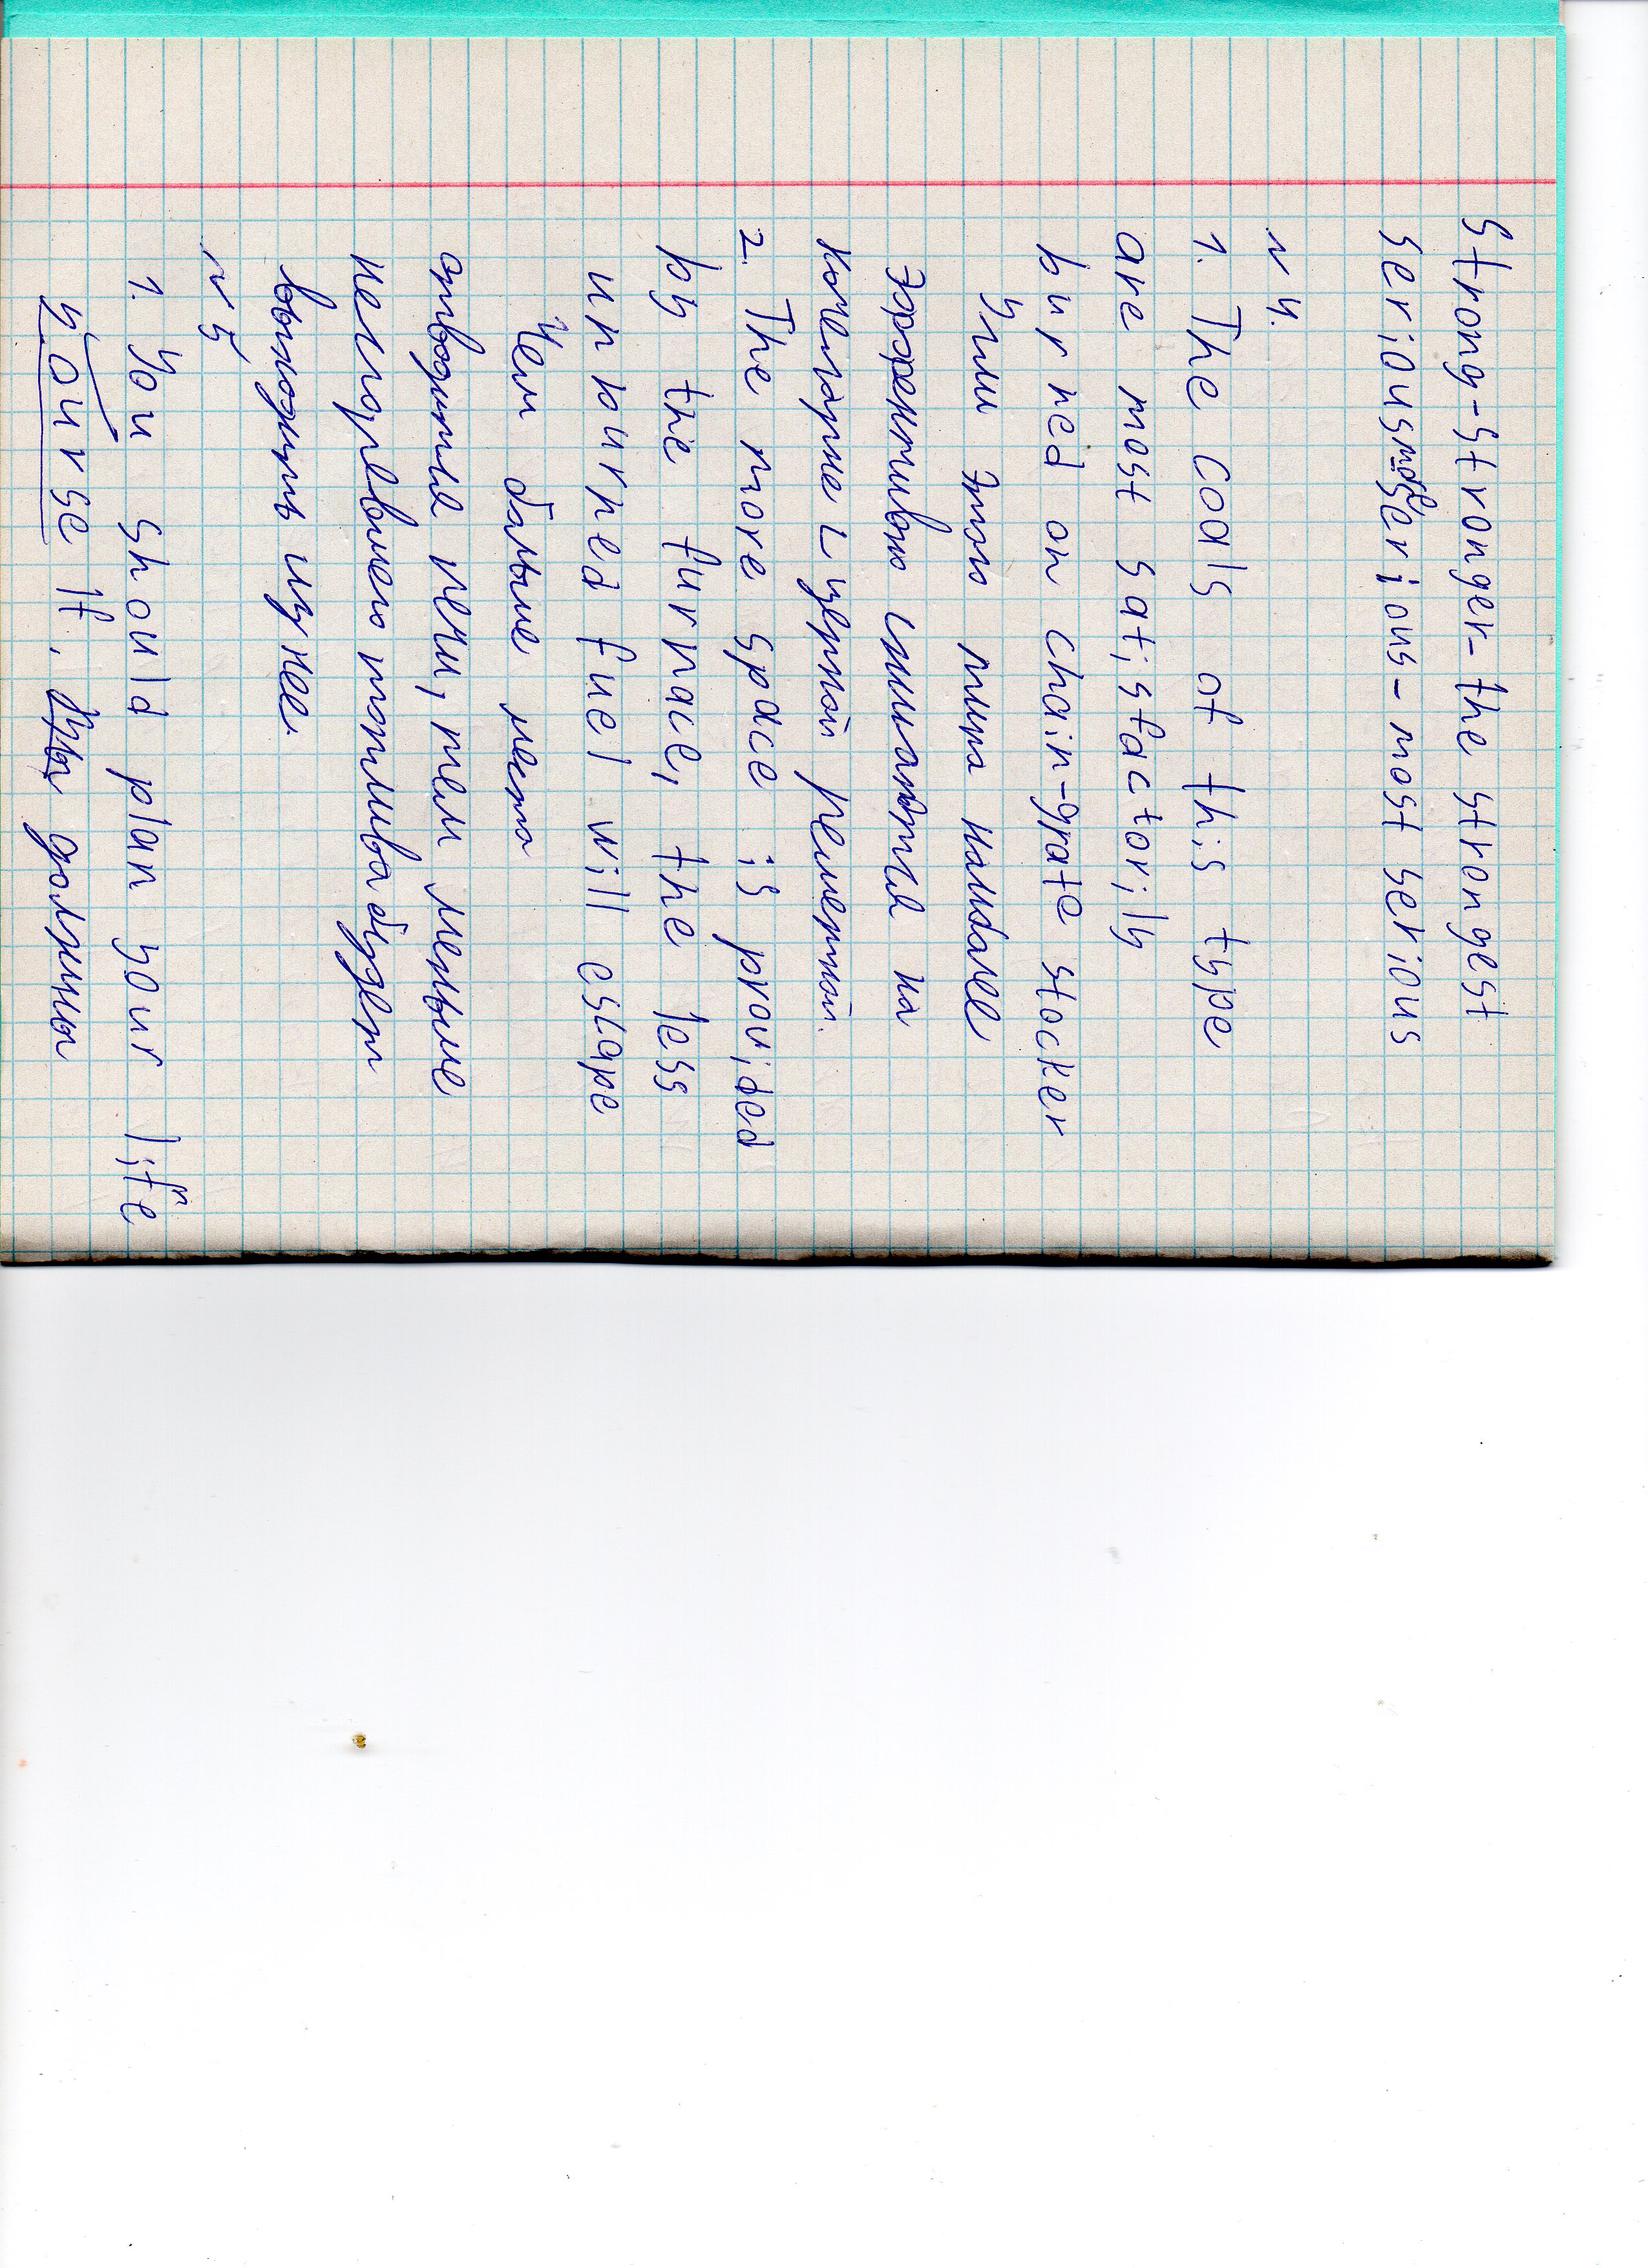 Strong-stronger-the strongest
serious-more serious-most serious
N 4.
1. The coals of this type
are most satisfactorily
burned on chain-grate stocker
Угли этого типа наиболее
эффективно сжигаются на
кочегарне с цепной решеткой.
2. The more space is provided
by the furnace, the less
unburned fuel will escape
Чем больше места
отводится печи, тем меньше
несгоревшего топлива будет
выходить из нее.
N 5
1. You should plan your life
course it. должны